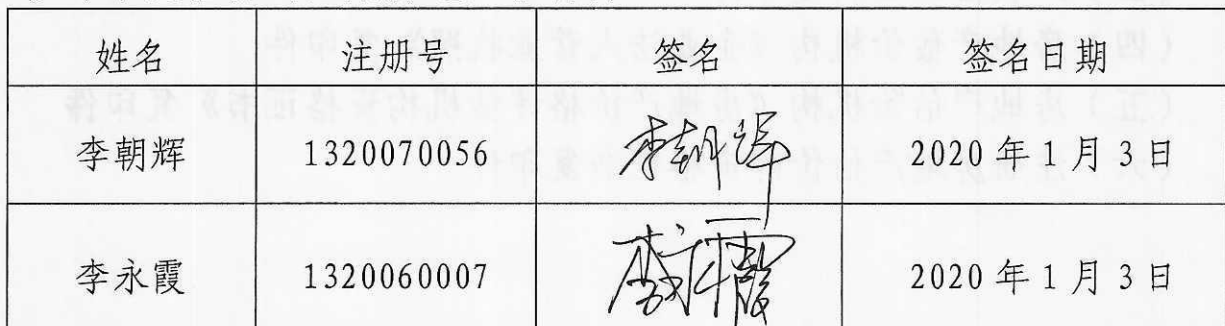 姓名 注册号 签名 签名日期
李朝辉 1320070056 李朝辉 2020年1月3日
李永霞 1320060007 李永霞 2020年1月3日